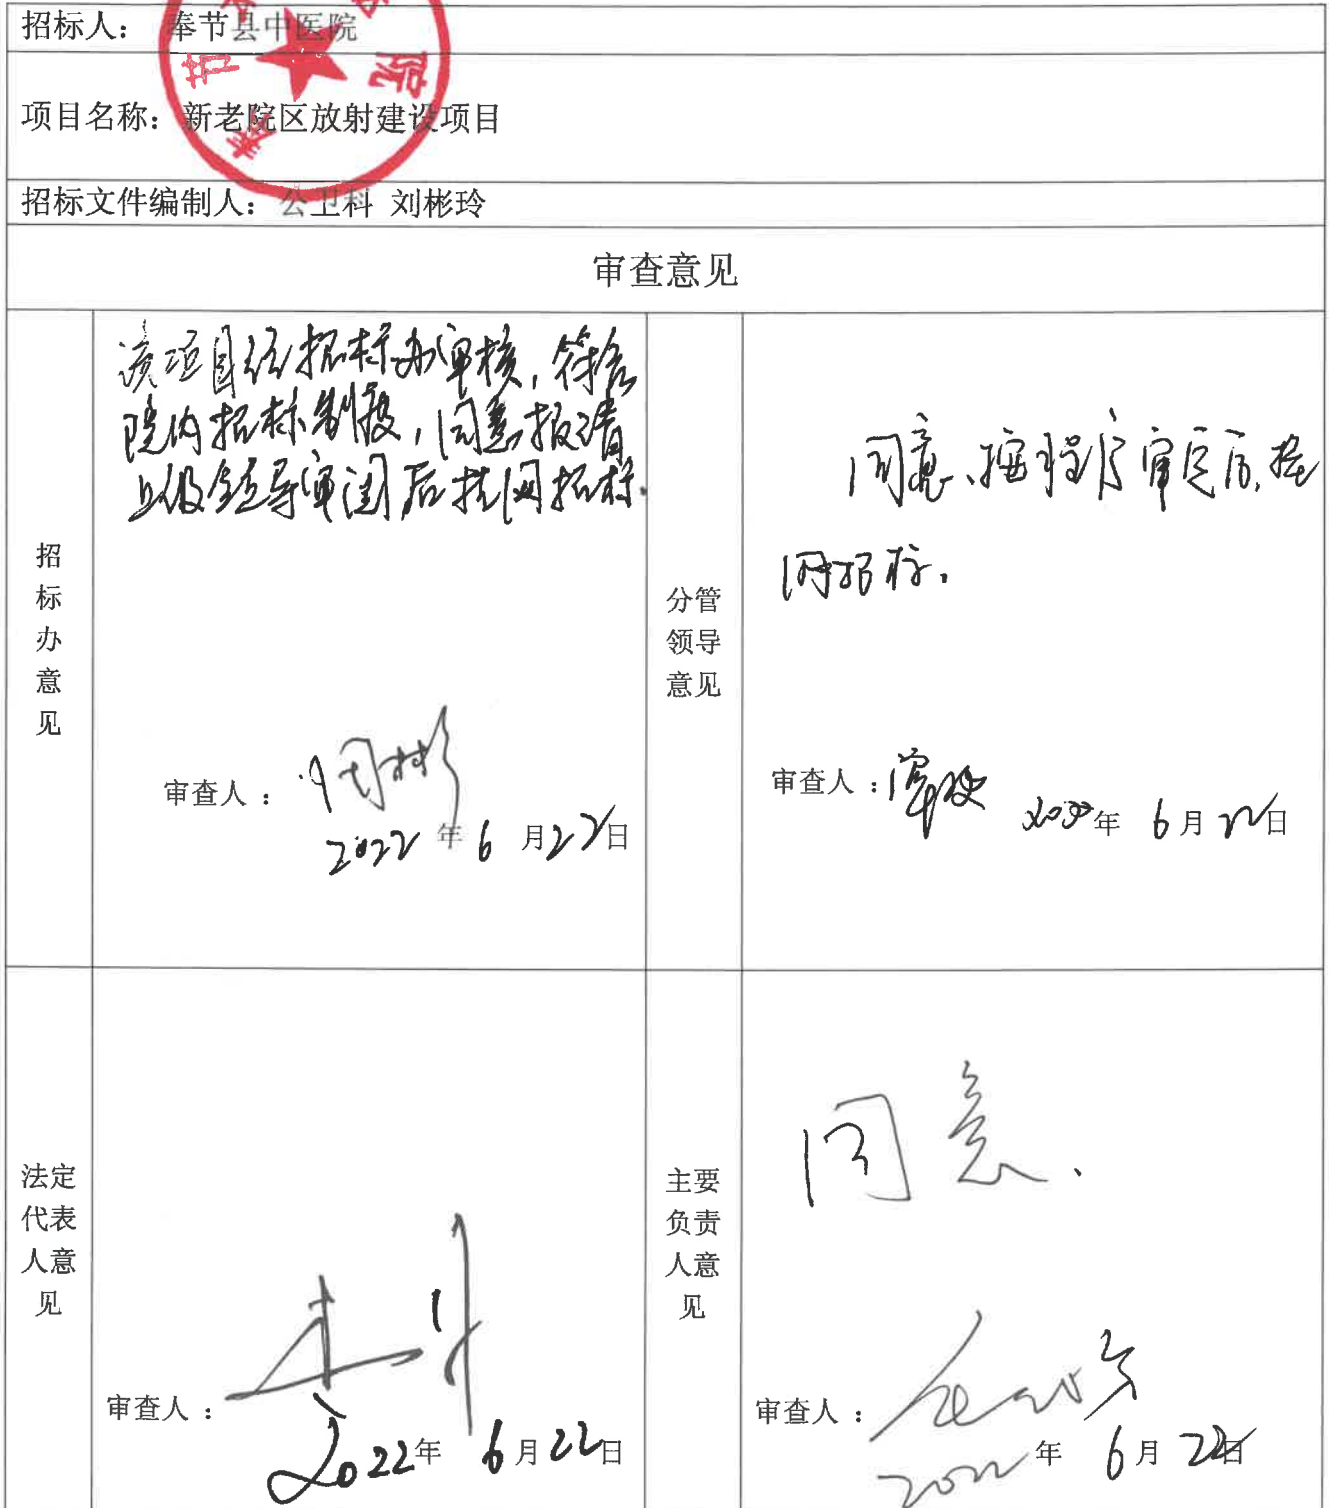 招标人： 奉节县中医院
项目名称：新老院区放射建设项目
招标文件编制人：公卫科 刘彬玲
审查意见
招标办意见
该项目经招标办审核，符合
院内招标制度，同意报请
上级领导审阅后挂网招标.
审查人：周彬
2022年6月22日
分管
领导
意见
同意、按程序审定后,挂
网招标.
审查人：
2022年6月22日
法定
代表
人意
见
审查人：
2022年6月22日
主要
负责
人意
见
同意.
审查人：
2022年6月22日